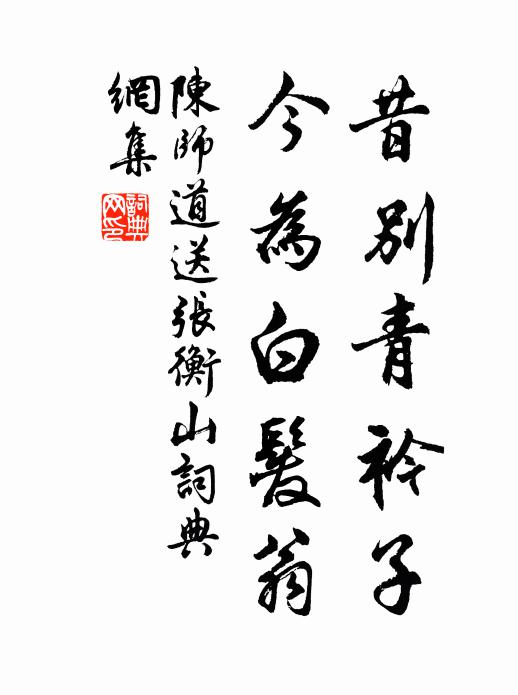 昔別青衿子
今為白髮翁
陳師道送張衡山詞典
網集
詞典網印